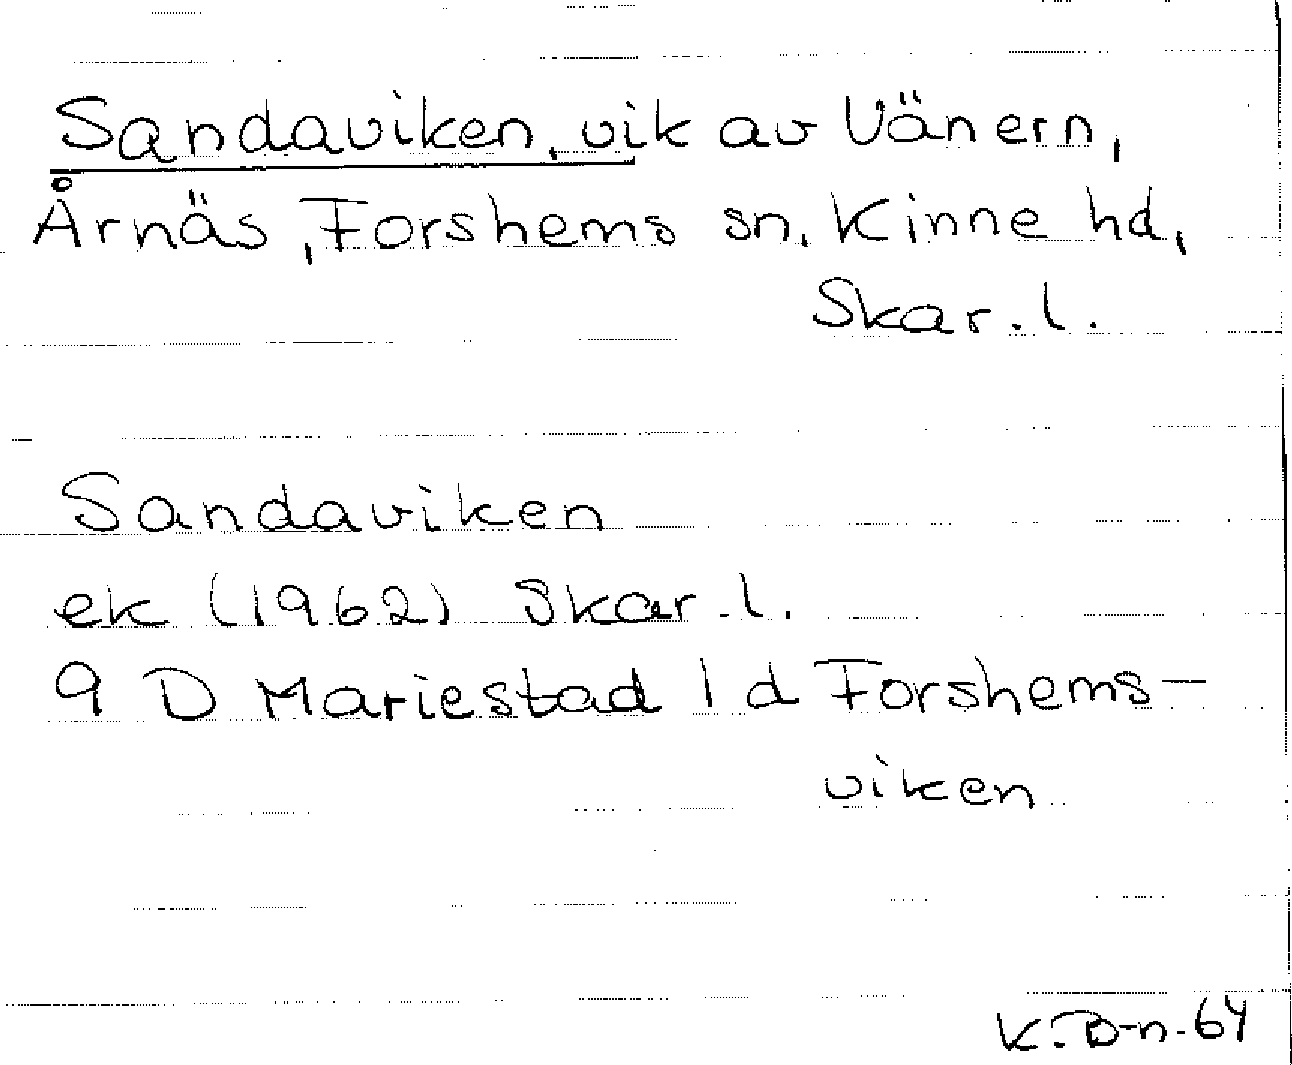 Sandaviken, vik av Vänern,
Årnäs, Forshems sn, Kinne hd,
Skar. l.
Sandaviken
ek (1962) Skar. l.
9 D Mariestad 1 d Forshems-
viken
K. D-n. 64